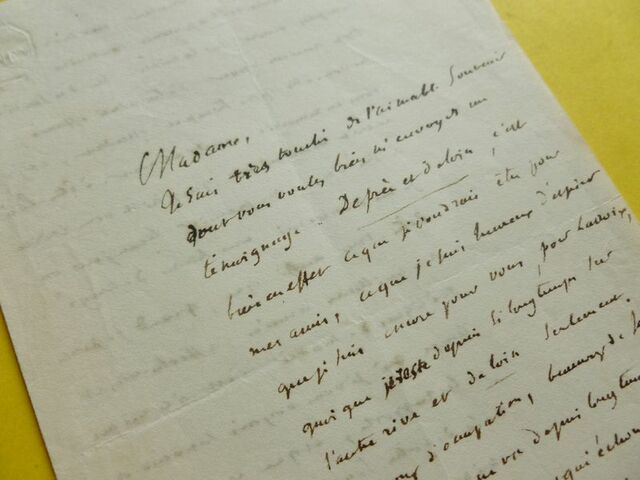 Madame,
Je suis très touché de l'aimable souvenir
dont vous voulez bien m'envoyer un
témoignage. De près et de loin, c'est
bien en effet ce que je voudrais être pour
mes amis, ce que je suis heureux d'apprendre
que je suis encore pour vous, pour
quoique je reste depuis si longtemps sur
l'autre rive et de loin seulement.
d'occupation, beaucoup de
vie depuis longtemps
qui